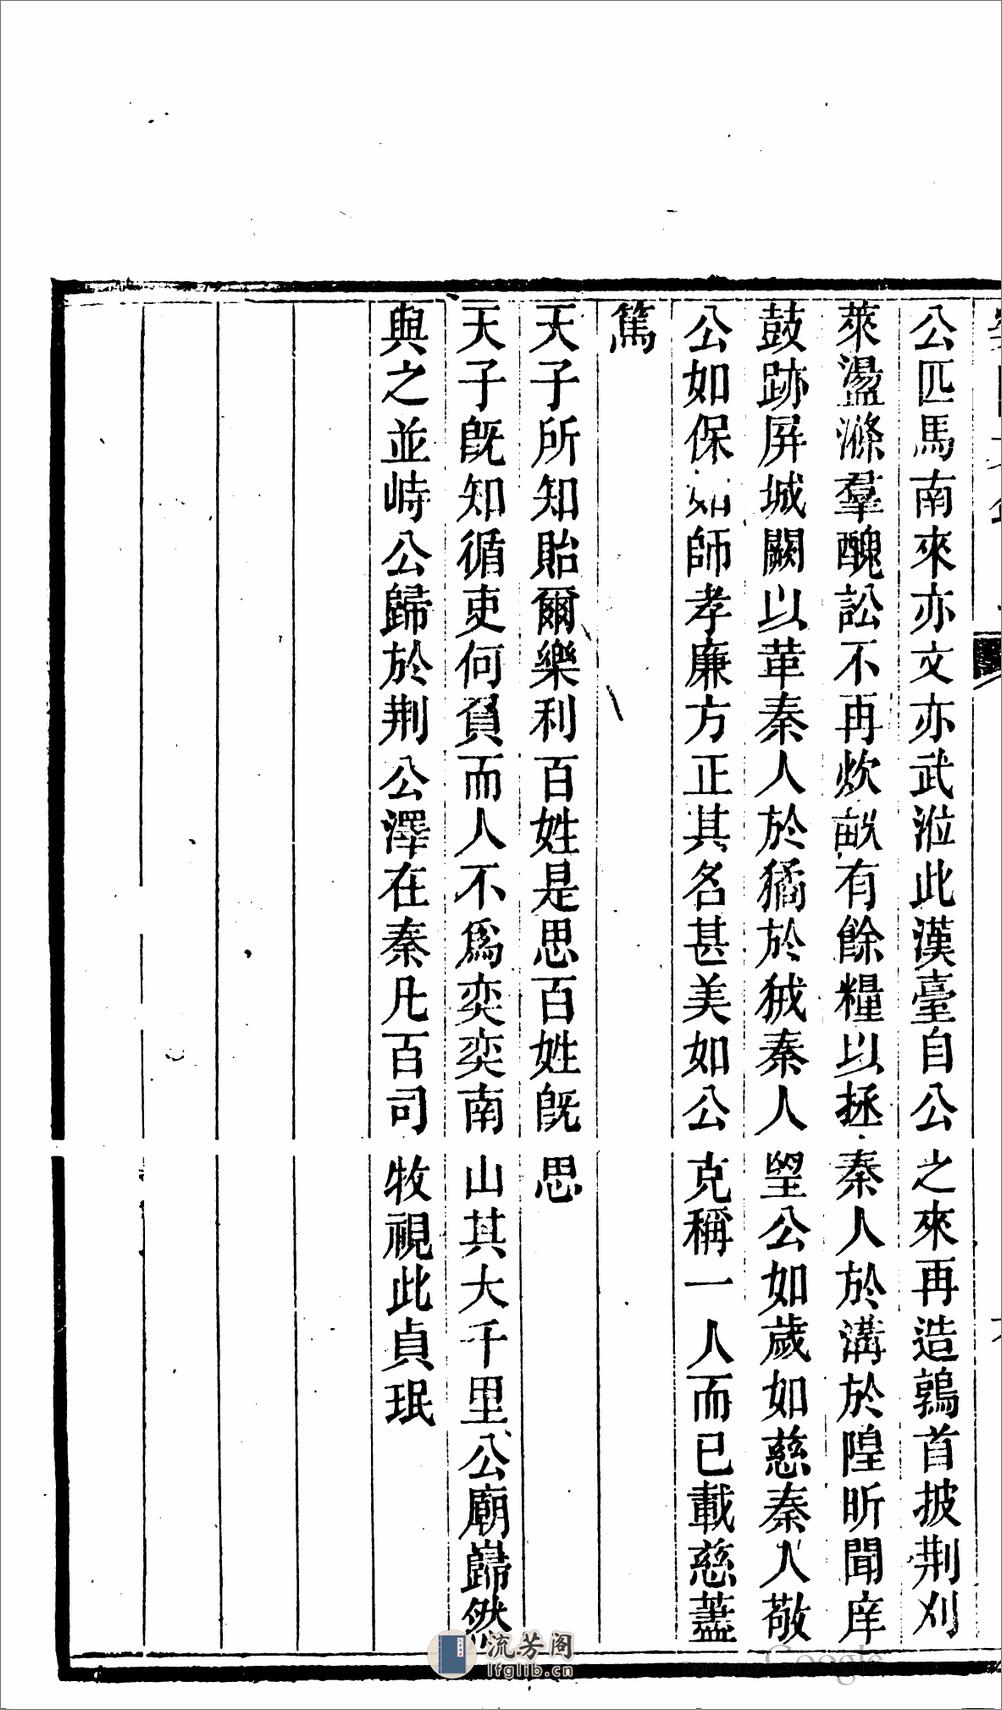 公匹馬南來亦文亦武涖此漢臺自公之來再造鶉首披荆刈
萊盪滌羣醜訟不再炊畝有餘糧以拯秦人於溝於隍昕聞庠
鼓跡屏城闕以革秦人於獝於狘秦人望公如歲如慈秦人敬
公如保如師孝廉方正其名甚美如公克稱一人而已載慈藎
篤
天子所知貽爾樂利百姓是思百姓旣思
天子旣知循吏何負而人不爲奕奕南山其大千里公廟巋然
與之並峙公歸於荆公澤在秦凡百司牧視此貞珉
流芳阁
lfglib.cn
Google